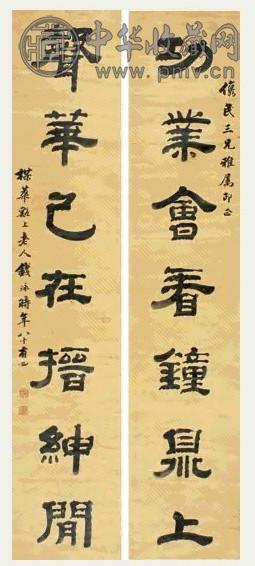 中华收藏网
www.pmv.cn
儁民三兄雅屬即正
功業會看鐘鼎上
聲華已在搢紳閒
楳華谿上老人錢泳時年八十有